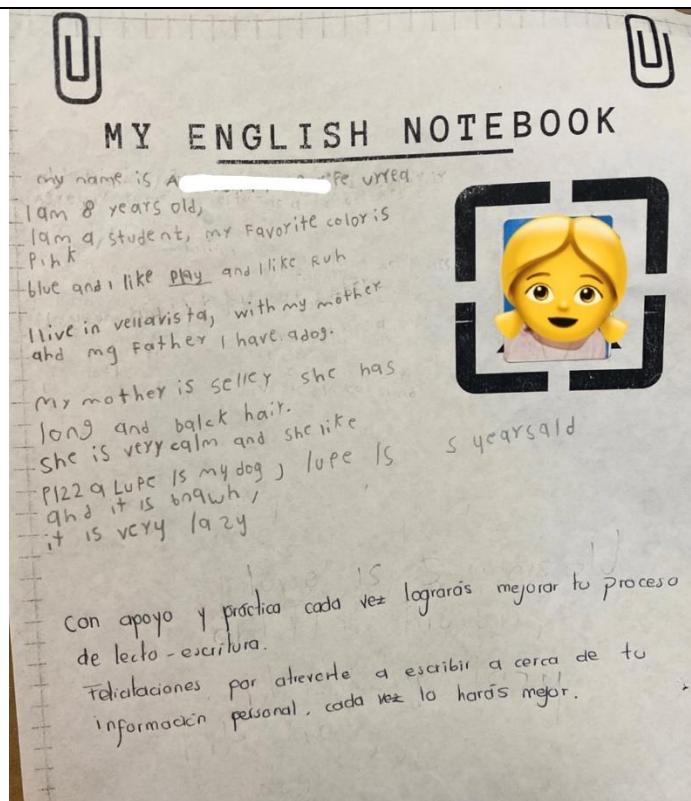 MY ENGLISH NOTEBOOK
my name is A urrea
I am 8 years old,
I am a student, my Favorite color is
Pink
blue and i like play and I like Run
I live in vellavista, with my mother
and my Father I have a dog.
My mother is seller she has
long and balck hair.
She is very calm and she like
Pizza Lupe is my dog, lupe is 5 years ald
and it is
it is very lazy
Con apoyo y práctica cada vez lograrás mejorar tu proceso
de lecto-escritura.
Felicitaciones por atreverte a escribir a cerca de tu
información personal, cada vez lo harás mejor.